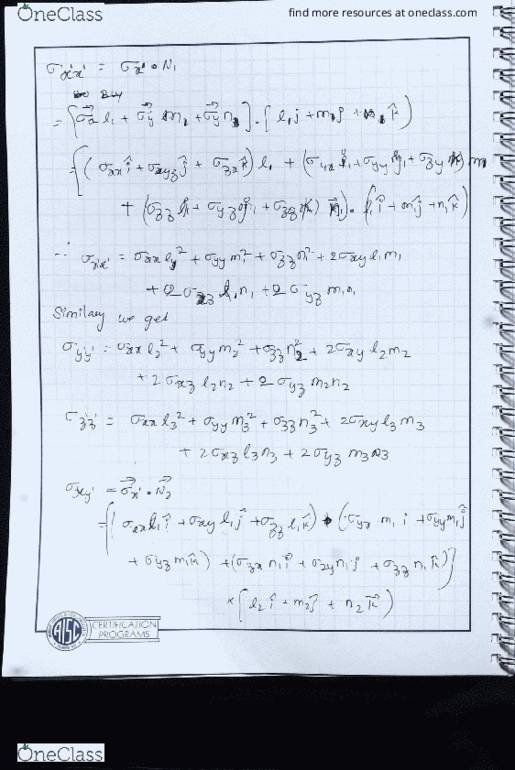 OneClass
find more resources at oneclass.com
σx'x' = σx' • N₁
= [σ⃗x l₁ + σ⃗y m₁ + σ⃗z n₁] . [l₁ j + m₁ j + n₁ k̂)
= {(σxx î + σxyz ĵ + σzx k̂) l₁ + (σyx î₁ + σyy ĵ₁ + σzy k̂) m₁
∴ σx'x' = σxx l₁² + σyy m₁² + σzz n₁² + 2σxy l₁ m₁
+ 2σxz l₁n₁ + 2σyz m₁n₁
Similary we get
σy'y' = σxx l₂² + σyy m₂² + σzz n₂² + 2σxy l₂m₂
+ 2σxz l₂n₂ + 2σyz m₂n₂
σz'z' = σxx l₃² + σyy m₃² + σzz n₃² + 2σxy l₃ m₃
+ 2σxz l₃n₃ + 2σyz m₃n₃
σx'y' = σ⃗x' • N⃗₂
={(σxx l₁ î + σxy l₁ ĵ + σzz l₁ k̂) + (σyx m₁ i + σyy m₁ ĵ
+ σyz m₁ k̂) + (σzx n₁ î + σzy n₁ j + σzz n₁ k̂)}
× [l₂ î + m₂ ĵ + n₂ k̂)
AISC
CERTIFICATION
PROGRAMS
OneClass